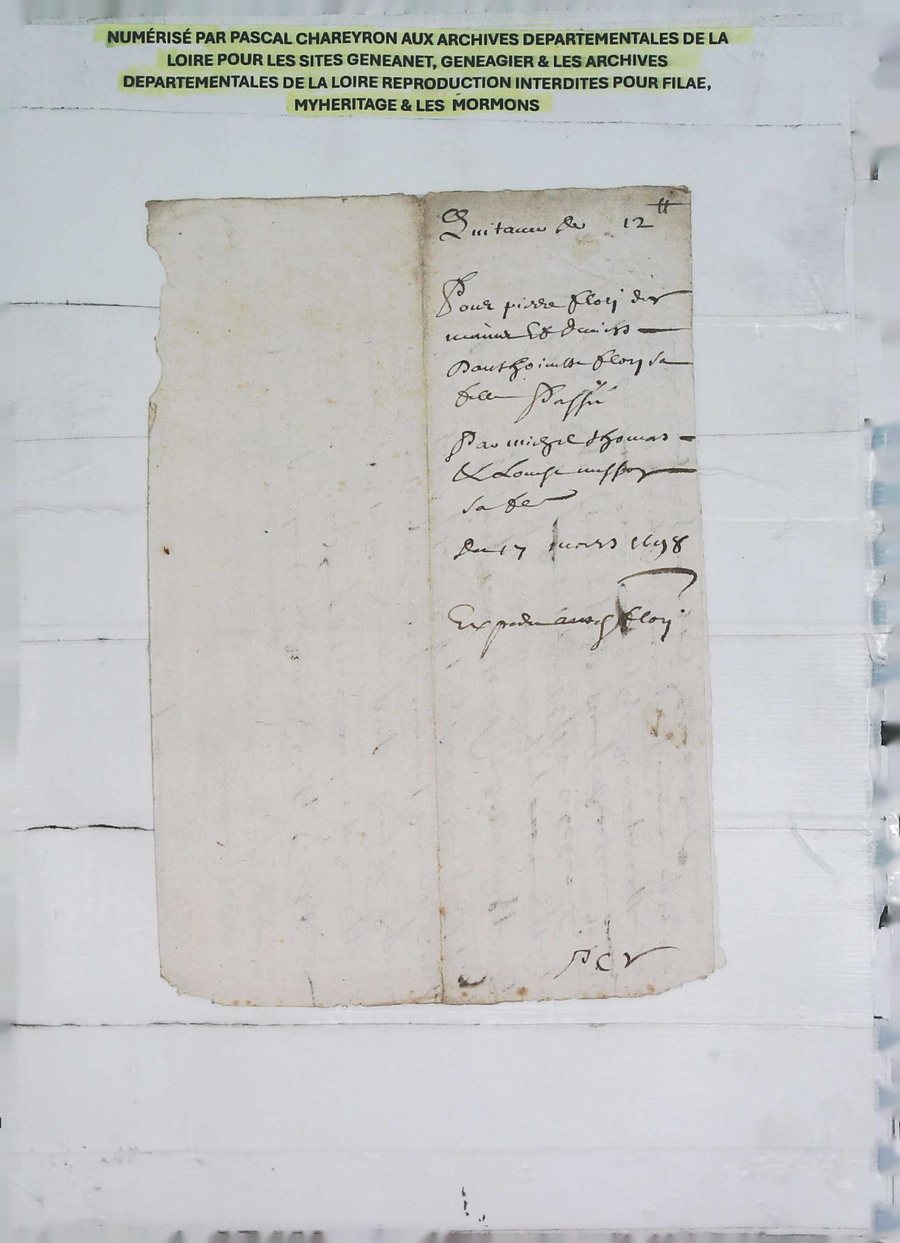 NUMÉRISÉ PAR PASCAL CHAREYRON AUX ARCHIVES DEPARTEMENTALES DE LA
LOIRE POUR LES SITES GENEANET, GENEAGIER & LES ARCHIVES
DEPARTEMENTALES DE LA LOIRE REPRODUCTION INTERDITES POUR FILAE,
MYHERITAGE & LES MORMONS
Quitance de 12ᵗᵗ
Pour pierre flory
fflory sa
fille Passée
Par michel thomas
& Louise
sa fe
du 17 mars 1698
Expedie flory